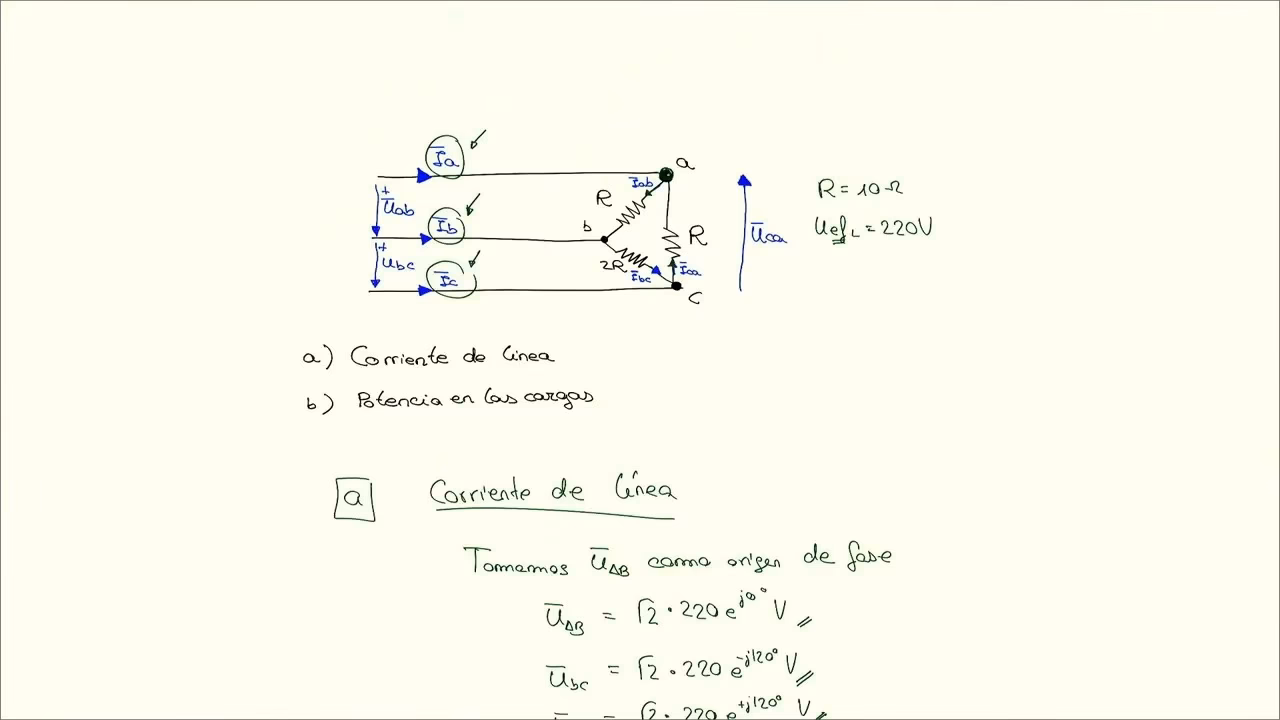 Ia
a
Iab
R = 10 Ω
R
+
Uab
Ib
b
Uef L = 220V
R
Uca
+
Ubc
2R
Ica
Ic
Ibc
C
a) Corriente de linea
b) Potencia en las cargas
a Corriente de línea
Tomamos UAB como origen de fase
UAB = √2 · 220 e^j0° V
Ubc = √2 · 220 e^-j120° V
√2 · 220 e^+j120° V